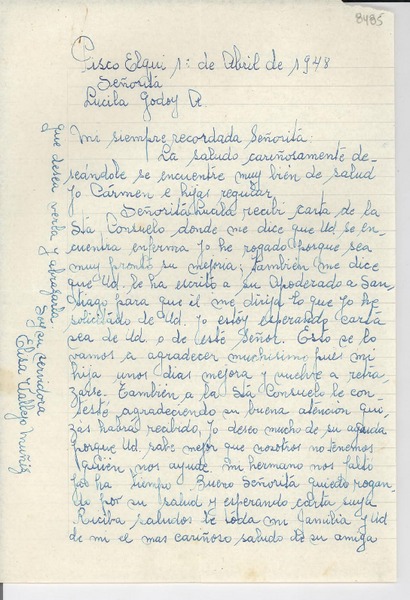 8485
Pisco Elqui 1: de Abril de 1948
Señorita
Lucila Godoy A.
Mi siempre recordada Señorita:
La saludo cariñosamente de-
seándole se encuentre muy bién de salud
yo Cármen e hijas regular,
Señorita Lucila recibi carta de la
Sta Consuelo donde me dice que Ud se en-
cuentra enferma yo he rogado porque sea
muy pronto su mejoria; también me dice
que Ud. le ha escrito a su Apoderado a San-
tiago para que él me dirija lo que yo he
solicitado de Ud. yo estoy esperando carta
sea de Ud. o de este Señor. Esto se lo
vamos a agradecer muchisimo pues mi
hija unos dias mejora y vuelve a retra-
zarse. También a la Sta Consuelo le con-
testé agradeciendo su buena atención qui-
zás habrá recibido, yo deseo mucho de su ayuda
porque Ud. sabe mejor que nosotros no tenemos
quien nos ayude. mi hermano nos faltó
hace tiempo. Bueno Señorita quedo rogan-
do por su salud y esperando carta suya
Reciba saludos de toda mi familia y Ud
de mi el mas cariñoso saludo de su amiga
que desea verla y abrazarla
Soy su servidora
Elisa Callejo Muñiz